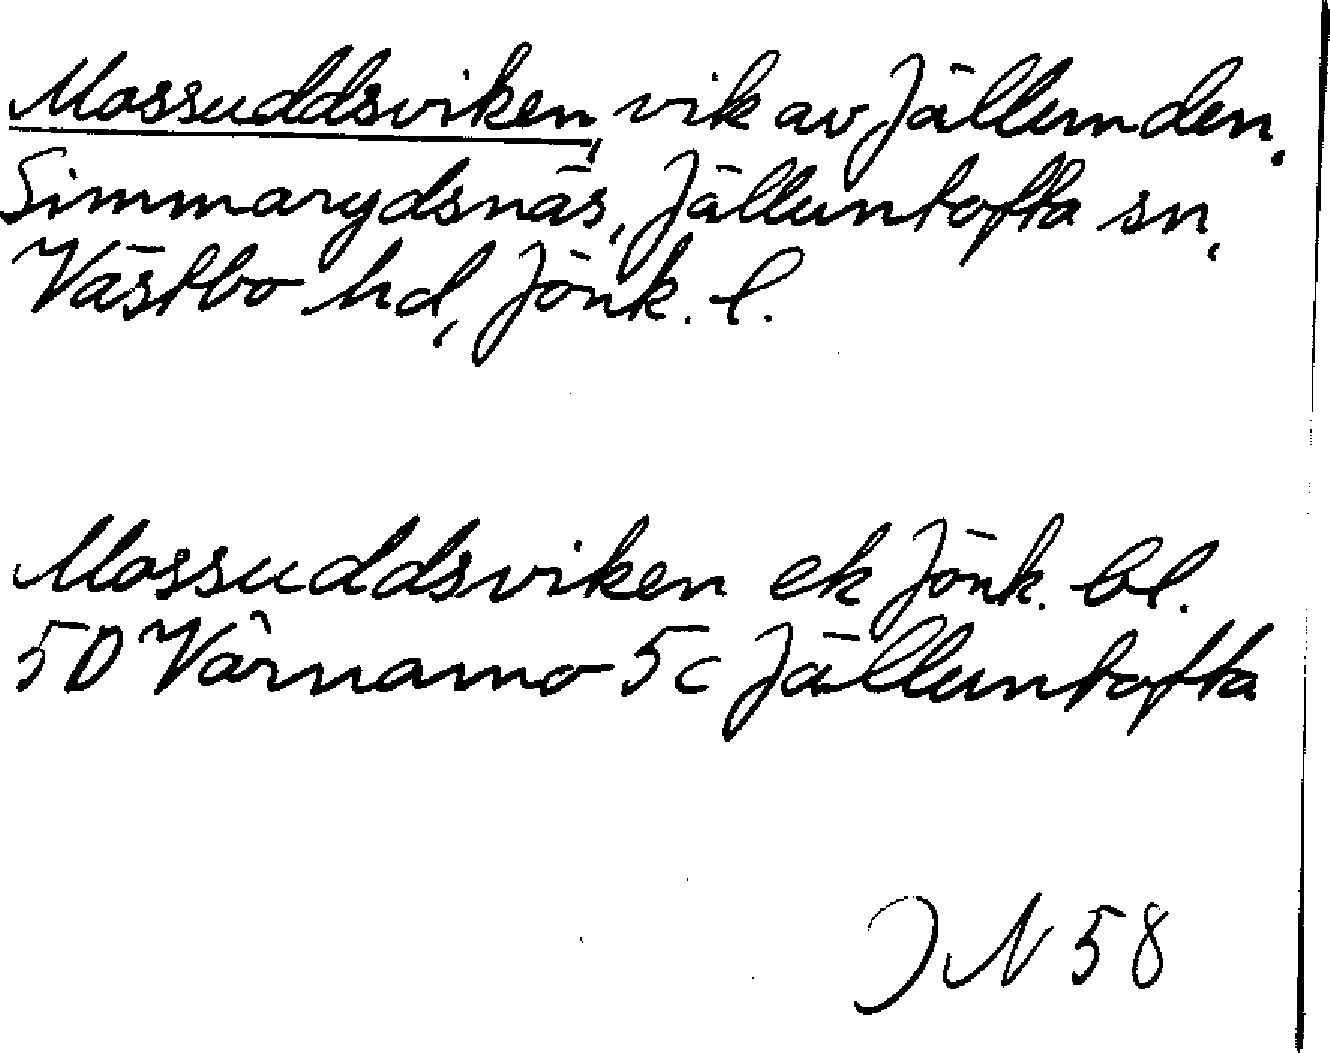 Mossuddsviken, vik av Jällunden.
Simmarydsnäs, Jälluntofta sn,
Västbo hd, Jönk. l.
Mossuddsviken ek Jönk. bl.
5D Värnamo 5c Jälluntofta
JN 58